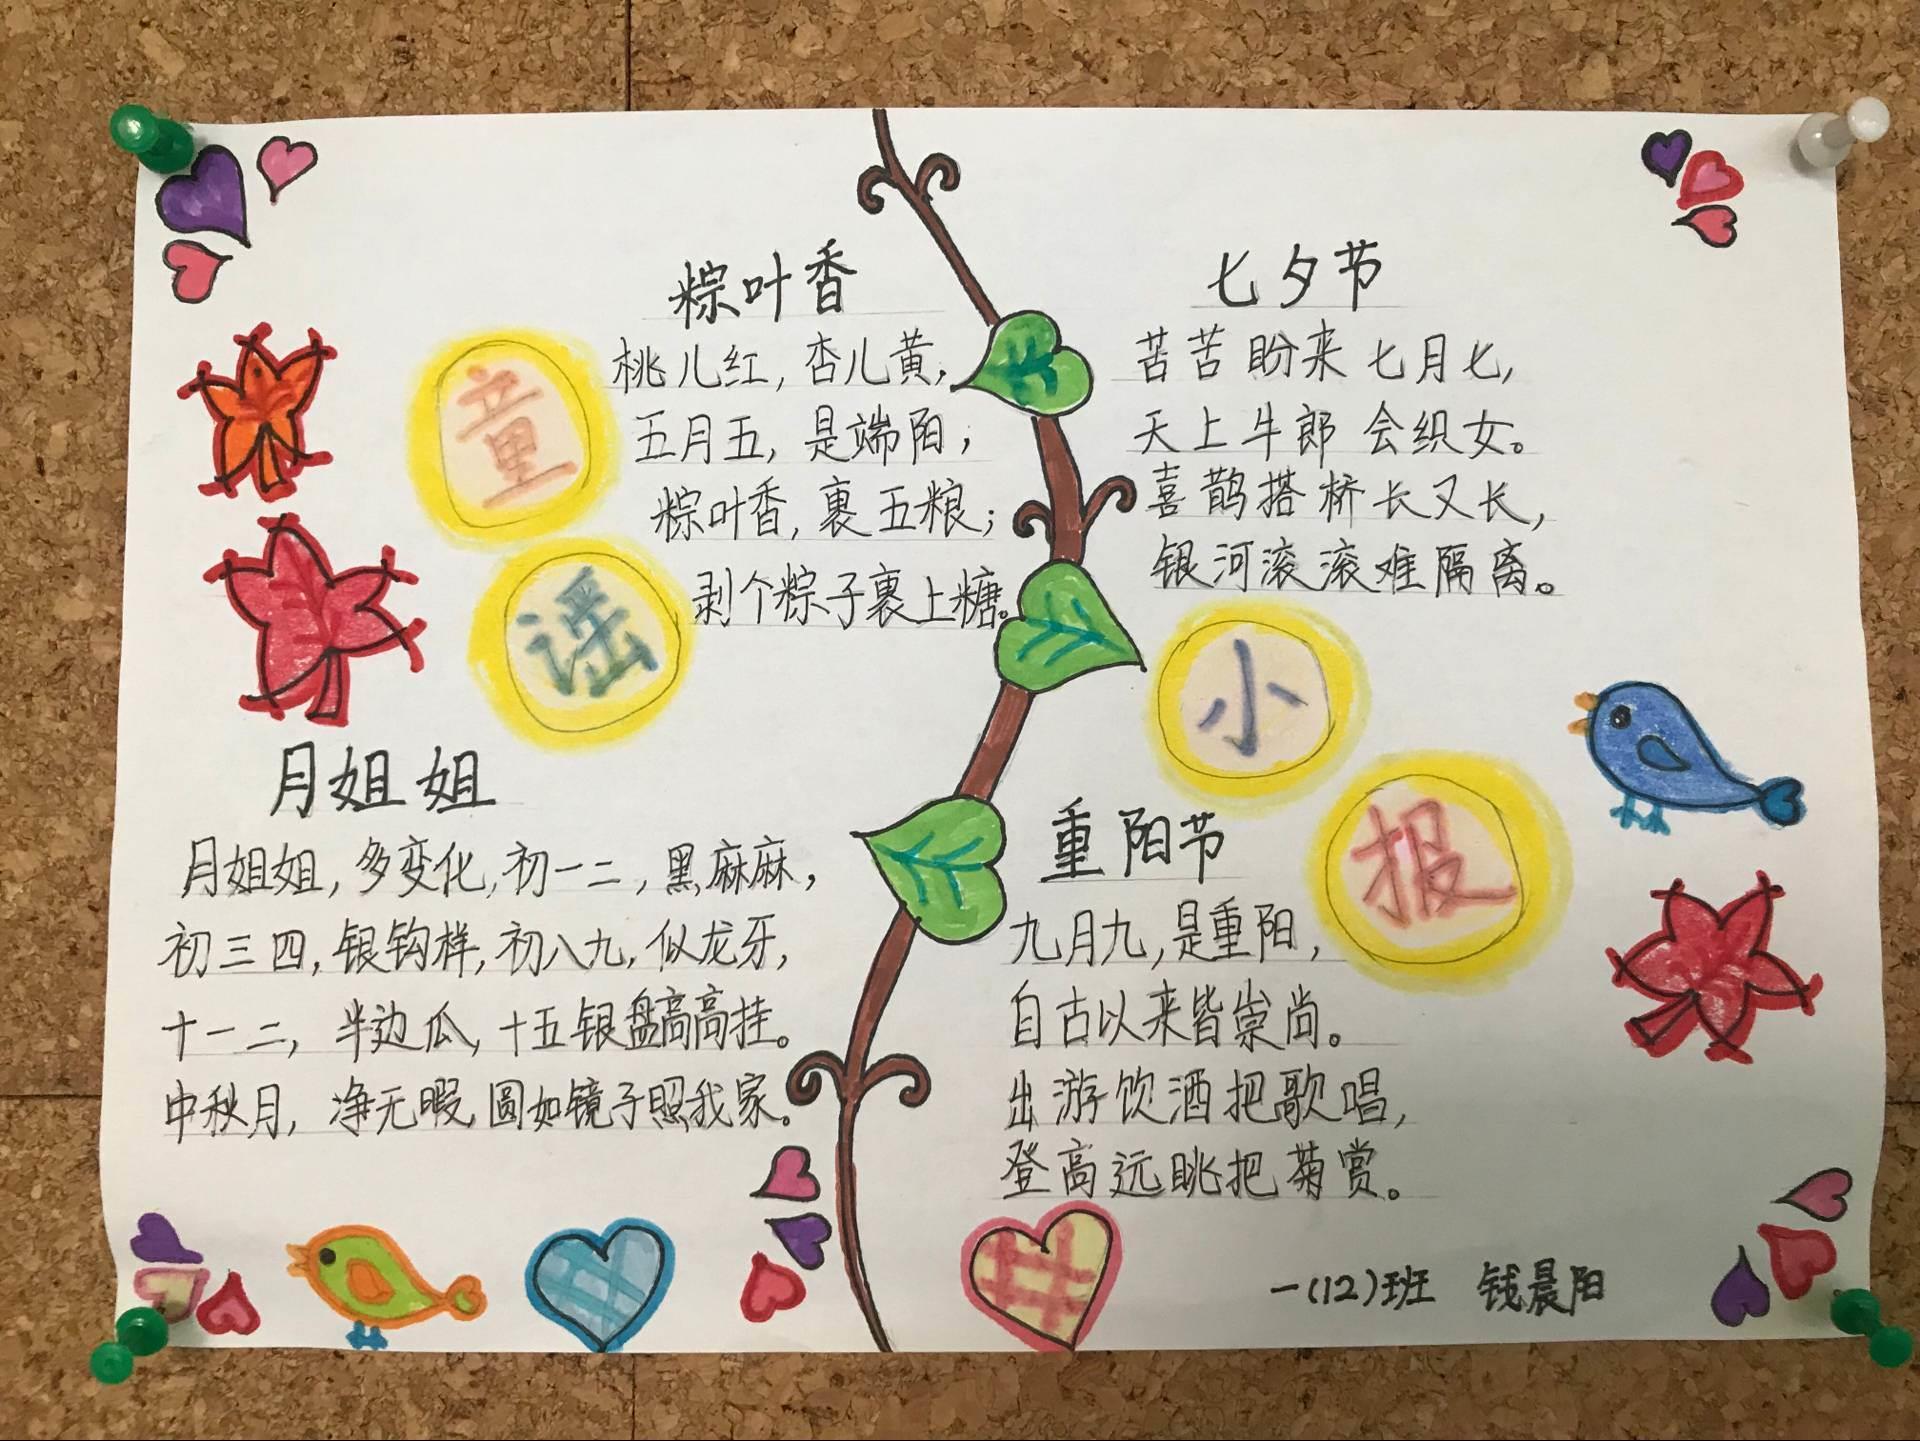 童
谣
小
报
粽叶香
桃儿红,杏儿黄,
五月五,是端阳,
粽叶香,裹五粮;
剥个粽子裹上糖。
月姐姐
月姐姐,多变化,初一二,黑麻麻,
初三四,银钩样,初八九,似龙牙,
十一二,半边瓜,十五银盘高高挂。
中秋月,净无暇,圆如镜子照我家。
七夕节
苦苦盼来七月七,
天上牛郎会织女。
喜鹊搭桥长又长,
银河滚滚难隔离。
重阳节
九月九,是重阳,
自古以来皆崇尚。
出游饮酒把歌唱,
登高远眺把菊赏。
一(12)班 钱晨阳